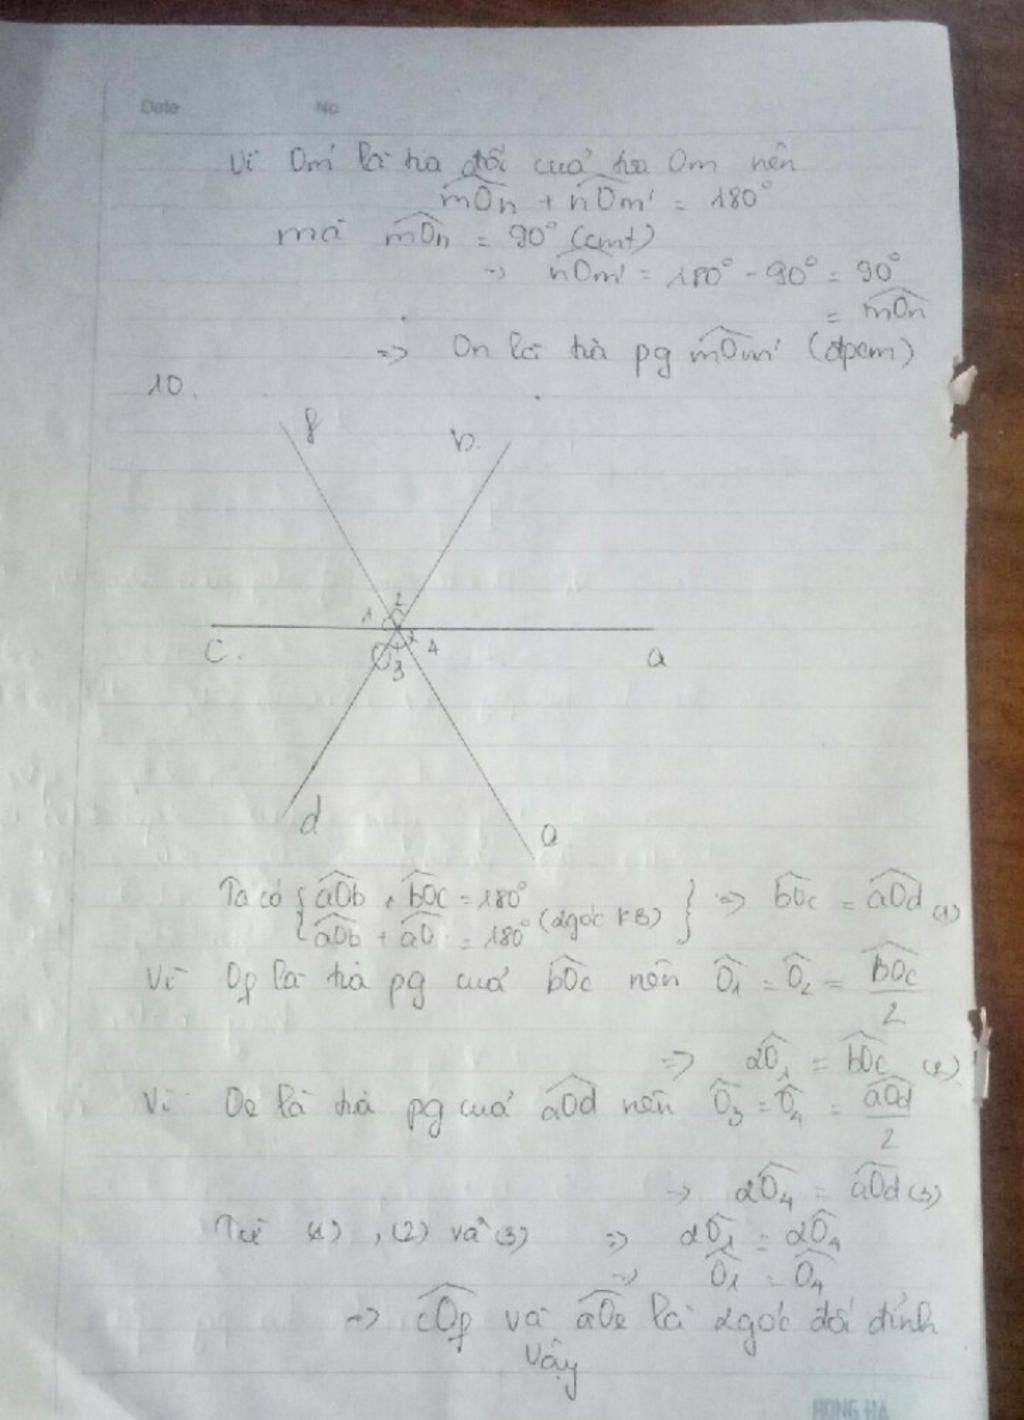 Date No
Vì Om' là tia đối của tia Om nên
mOn + nOm' = 180°
mà mOn = 90° (cmt)
=> nOm' = 180° - 90° = 90°
= mOn
=> On là tia pg mOm' (đpcm)
10.
f b
1 2
c. 3 4 a
d a
Ta có { aOb + bOc = 180°
aOb + aO = 180° (2 góc KB) } => bOc = aOd (1)
Vì Of là tia pg của bOc nên O1 = O2 = bOc/2
=> 2O1 = bOc (2)
Vì Oe là tia pg của aOd nên O3 = O4 = aOd/2
=> 2O4 = aOd (3)
Từ (1), (2) và (3) => 2O1 = 2O4
=> O1 = O4
=> cOf và aOe là 2 góc đối đỉnh
Vậy
HONG HA